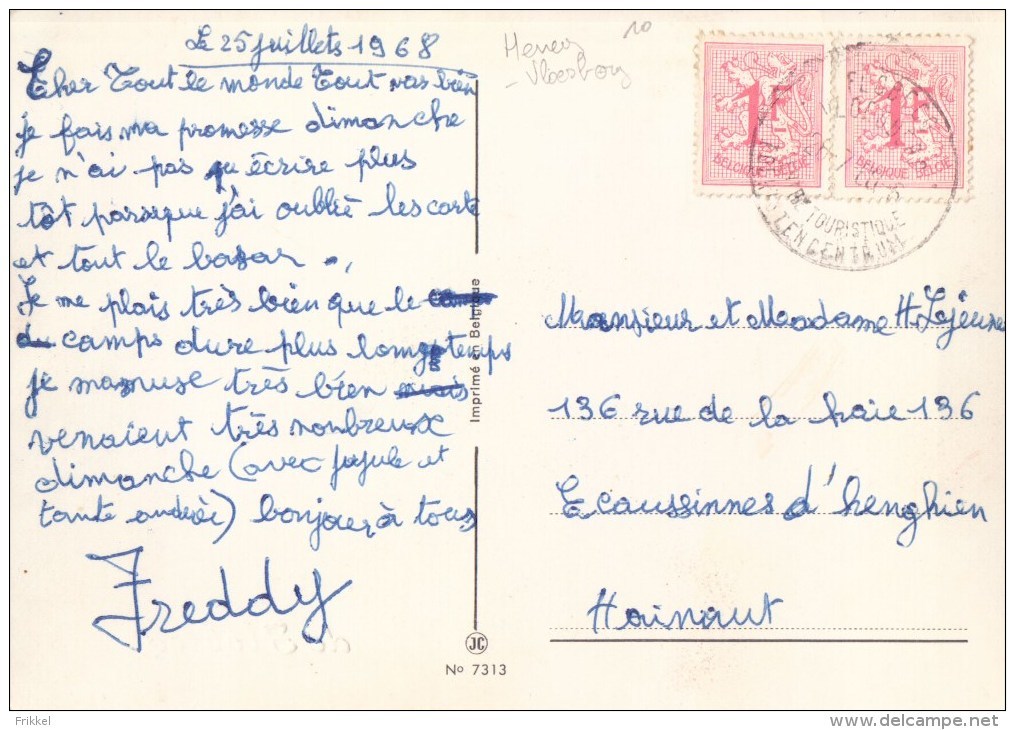 Le 25 juillets 1968
Cher Tout le monde Tout vas bien
je fais ma promesse dimanche
je n'ai pas pu écrire plus
tôt parseque j'ai oublié les carte
et tout le bazar.,
Je me plais très bien que le
camps dure plus longtemps
je mamuse très bien mais
venaient très nombreux
dimanche (avec jojule et
tante andréé) bonjour à tous
Freddy
Imprimé en Belgique
JC
No 7313
10
1F 1F
BELGIQUE BELGIE BELGIQUE BELGIE
TOURISTIQUE
TENCENTRUM
Monsieur et Madame H. Lejeune
136 rue de la haie 136
Ecaussinnes d'henghien
Hainaut
Frikkel
www.delcampe.net